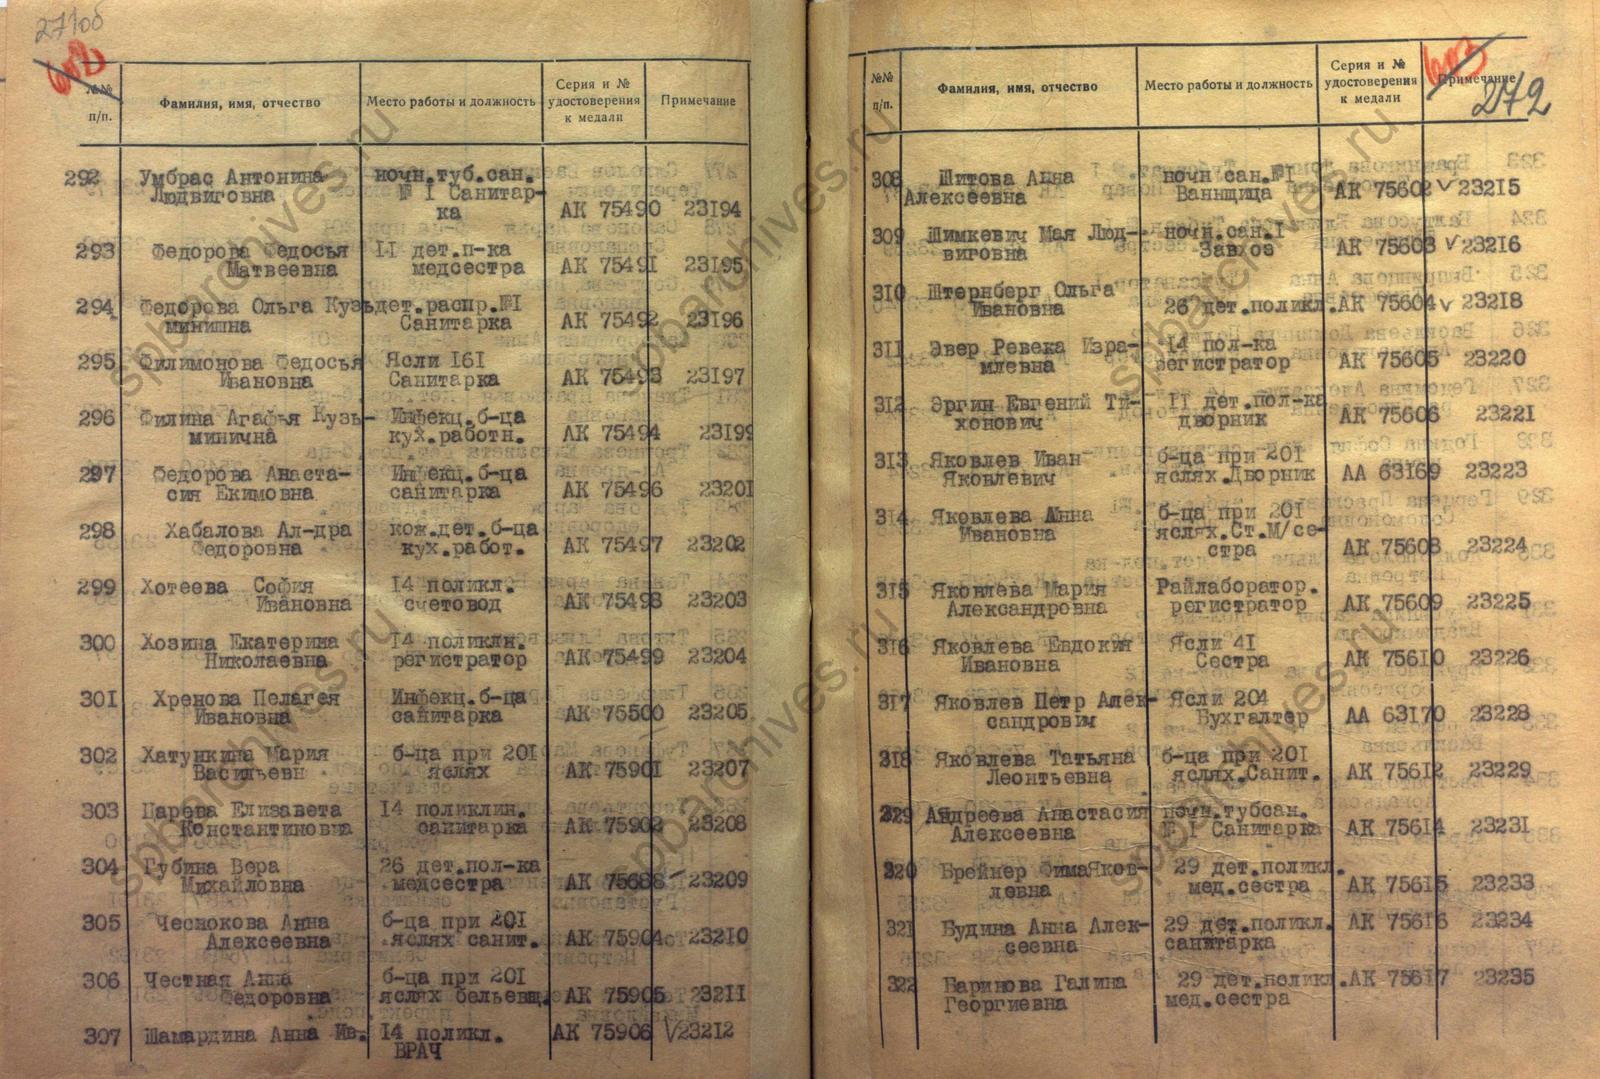 271об
602
№№ п/п. Фамилия, имя, отчество Место работы и должность Серия и № удостоверения к медали Примечание
292 Умбрас Антонина ночн.туб.сан.
Людвиговна № I Санитар-
ка АК 75490 23194
293 Федорова Федосья II дет.п-ка
Матвеевна медсестра АК 75491 23195
294 Федорова Ольга Кузь дет.распр.№I
минишна Санитарка АК 75492 23196
295 Филимонова Федосья Ясли I6I
Ивановна Санитарка АК 75493 23197
296 Филина Агафья Кузь- Инфекц.б-ца
минична кух.работн. АК 75494 23199
297 Федорова Анаста- Инфекц.б-ца
сия Екимовна санитарка АК 75496 23201
298 Хабалова Ал-дра кож.дет.б-ца
Федоровна кух.работ. АК 75497 23202
299 Хотеева София I4 поликл.
Ивановна счетовод АК 75498 23203
300 Хозина Екатерина I4 поликлин.
Николаевна регистратор АК 75499 23204
301 Хренова Пелагея Инфекц.б-ца
Ивановна санитарка АК 75500 23205
302 Хатункина Мария б-ца при 20I
Васильевн яслях АК 75901 23207
303 Царева Елизавета I4 поликлин.
Константиновна санитарка АК 75902 23208
304 Губина Вера 26 дет.пол-ка
Михайловна медсестра АК 75688 23209
305 Чеснокова Анна б-ца при 20I
Алексеевна яслях санит. АК 75904 23210
306 Честная Анна б-ца при 20I
Федоровна яслях бельевщ. АК 75905 23211
307 Шамардина Анна Ив. I4 поликл. АК 75906 √23212
ВРАЧ
603
272
№№ п/п. Фамилия, имя, отчество Место работы и должность Серия и № удостоверения к медали Примечание
308 Шитова Анна ночн.сан.№I
Алексеевна Ваннщица АК 75602 √ 23215
309 Шимкевич Мая Люд- ночн.сан.I
виговна Завхоз АК 75603 √ 23216
310 Штернберг Ольга
Ивановна 26 дет.поликл. АК 75604 √ 23218
311 Эвер Ревека Изра- I4 пол-ка
млевна регистратор АК 75605 23220
312 Эргин Евгений Ти- II дет.пол-ка
хонович дворник АК 75606 23221
313 Яковлев Иван б-ца при 20I
Яковлевич яслях.Дворник АА 63169 23223
314 Яковлева Анна б-ца при 20I
Ивановна яслях.Ст.М/се-
стра АК 75608 23224
315 Яковлева Мария Райлаборатор.
Александровна регистратор АК 75609 23225
316 Яковлева Евдокия Ясли 4I
Ивановна Сестра АК 75610 23226
317 Яковлев Петр Алек- Ясли 204
сандрович Бухгалтер АА 63170 23228
318 Яковлева Татьяна б-ца при 20I
Леонтьевна яслях.Санит. АК 75612 23229
329 Андреева Анастасия ночн.тубсан.
Алексеевна № I Санитарка АК 75614 23231
320 Брейнер ФимаЯков- 29 дет.поликл.
левна мед.сестра АК 75615 23233
321 Будина Анна Алек- 29 дет.поликл. АК 75616 23234
сеевна санитарка
322 Баринова Галина 29 дет.поликл. АК 75617 23235
Георгиевна мед.сестра
spbarchives.ru